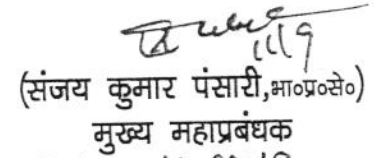 11/9
(संजय कुमार पंसारी,भा०प्र०से०)
मुख्य महाप्रबंधक